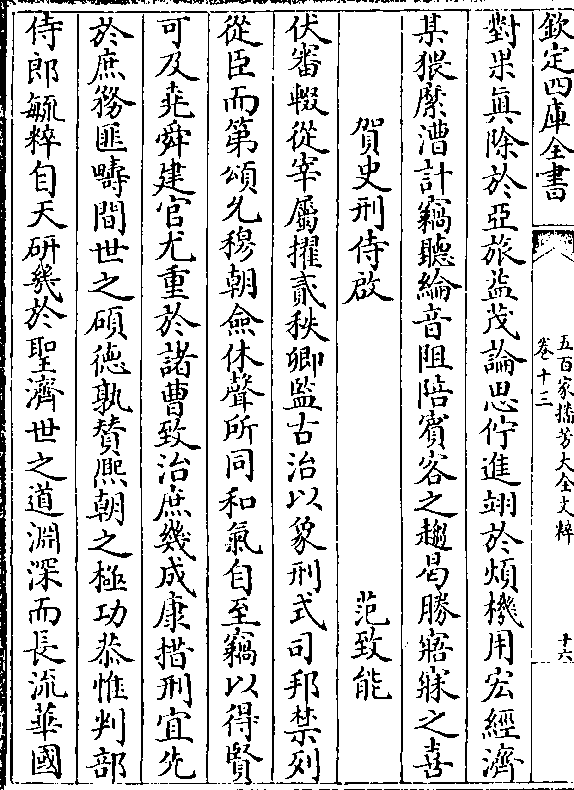 欽定四庫全書
五百家播芳大全文粹
卷十三
十六
對果眞除於亞旅益茂論思佇進翊於煩機用宏經濟
某猥縻漕計竊聽綸音阻陪賓客之趨曷勝寤寐之喜
賀史刑侍啟
范致能
伏審輟從宰屬擢貳秋卿監古治以象刑式司邦禁列
從臣而第頌允穆朝僉休聲所同和氣自至竊以得賢
可及堯舜建官尤重於諸曹致治庶幾成康措刑宜先
於庶務匪疇間世之碩德孰贊熙朝之極功恭惟判部
侍郎毓粹自天研幾於聖濟世之道淵深而長流華國